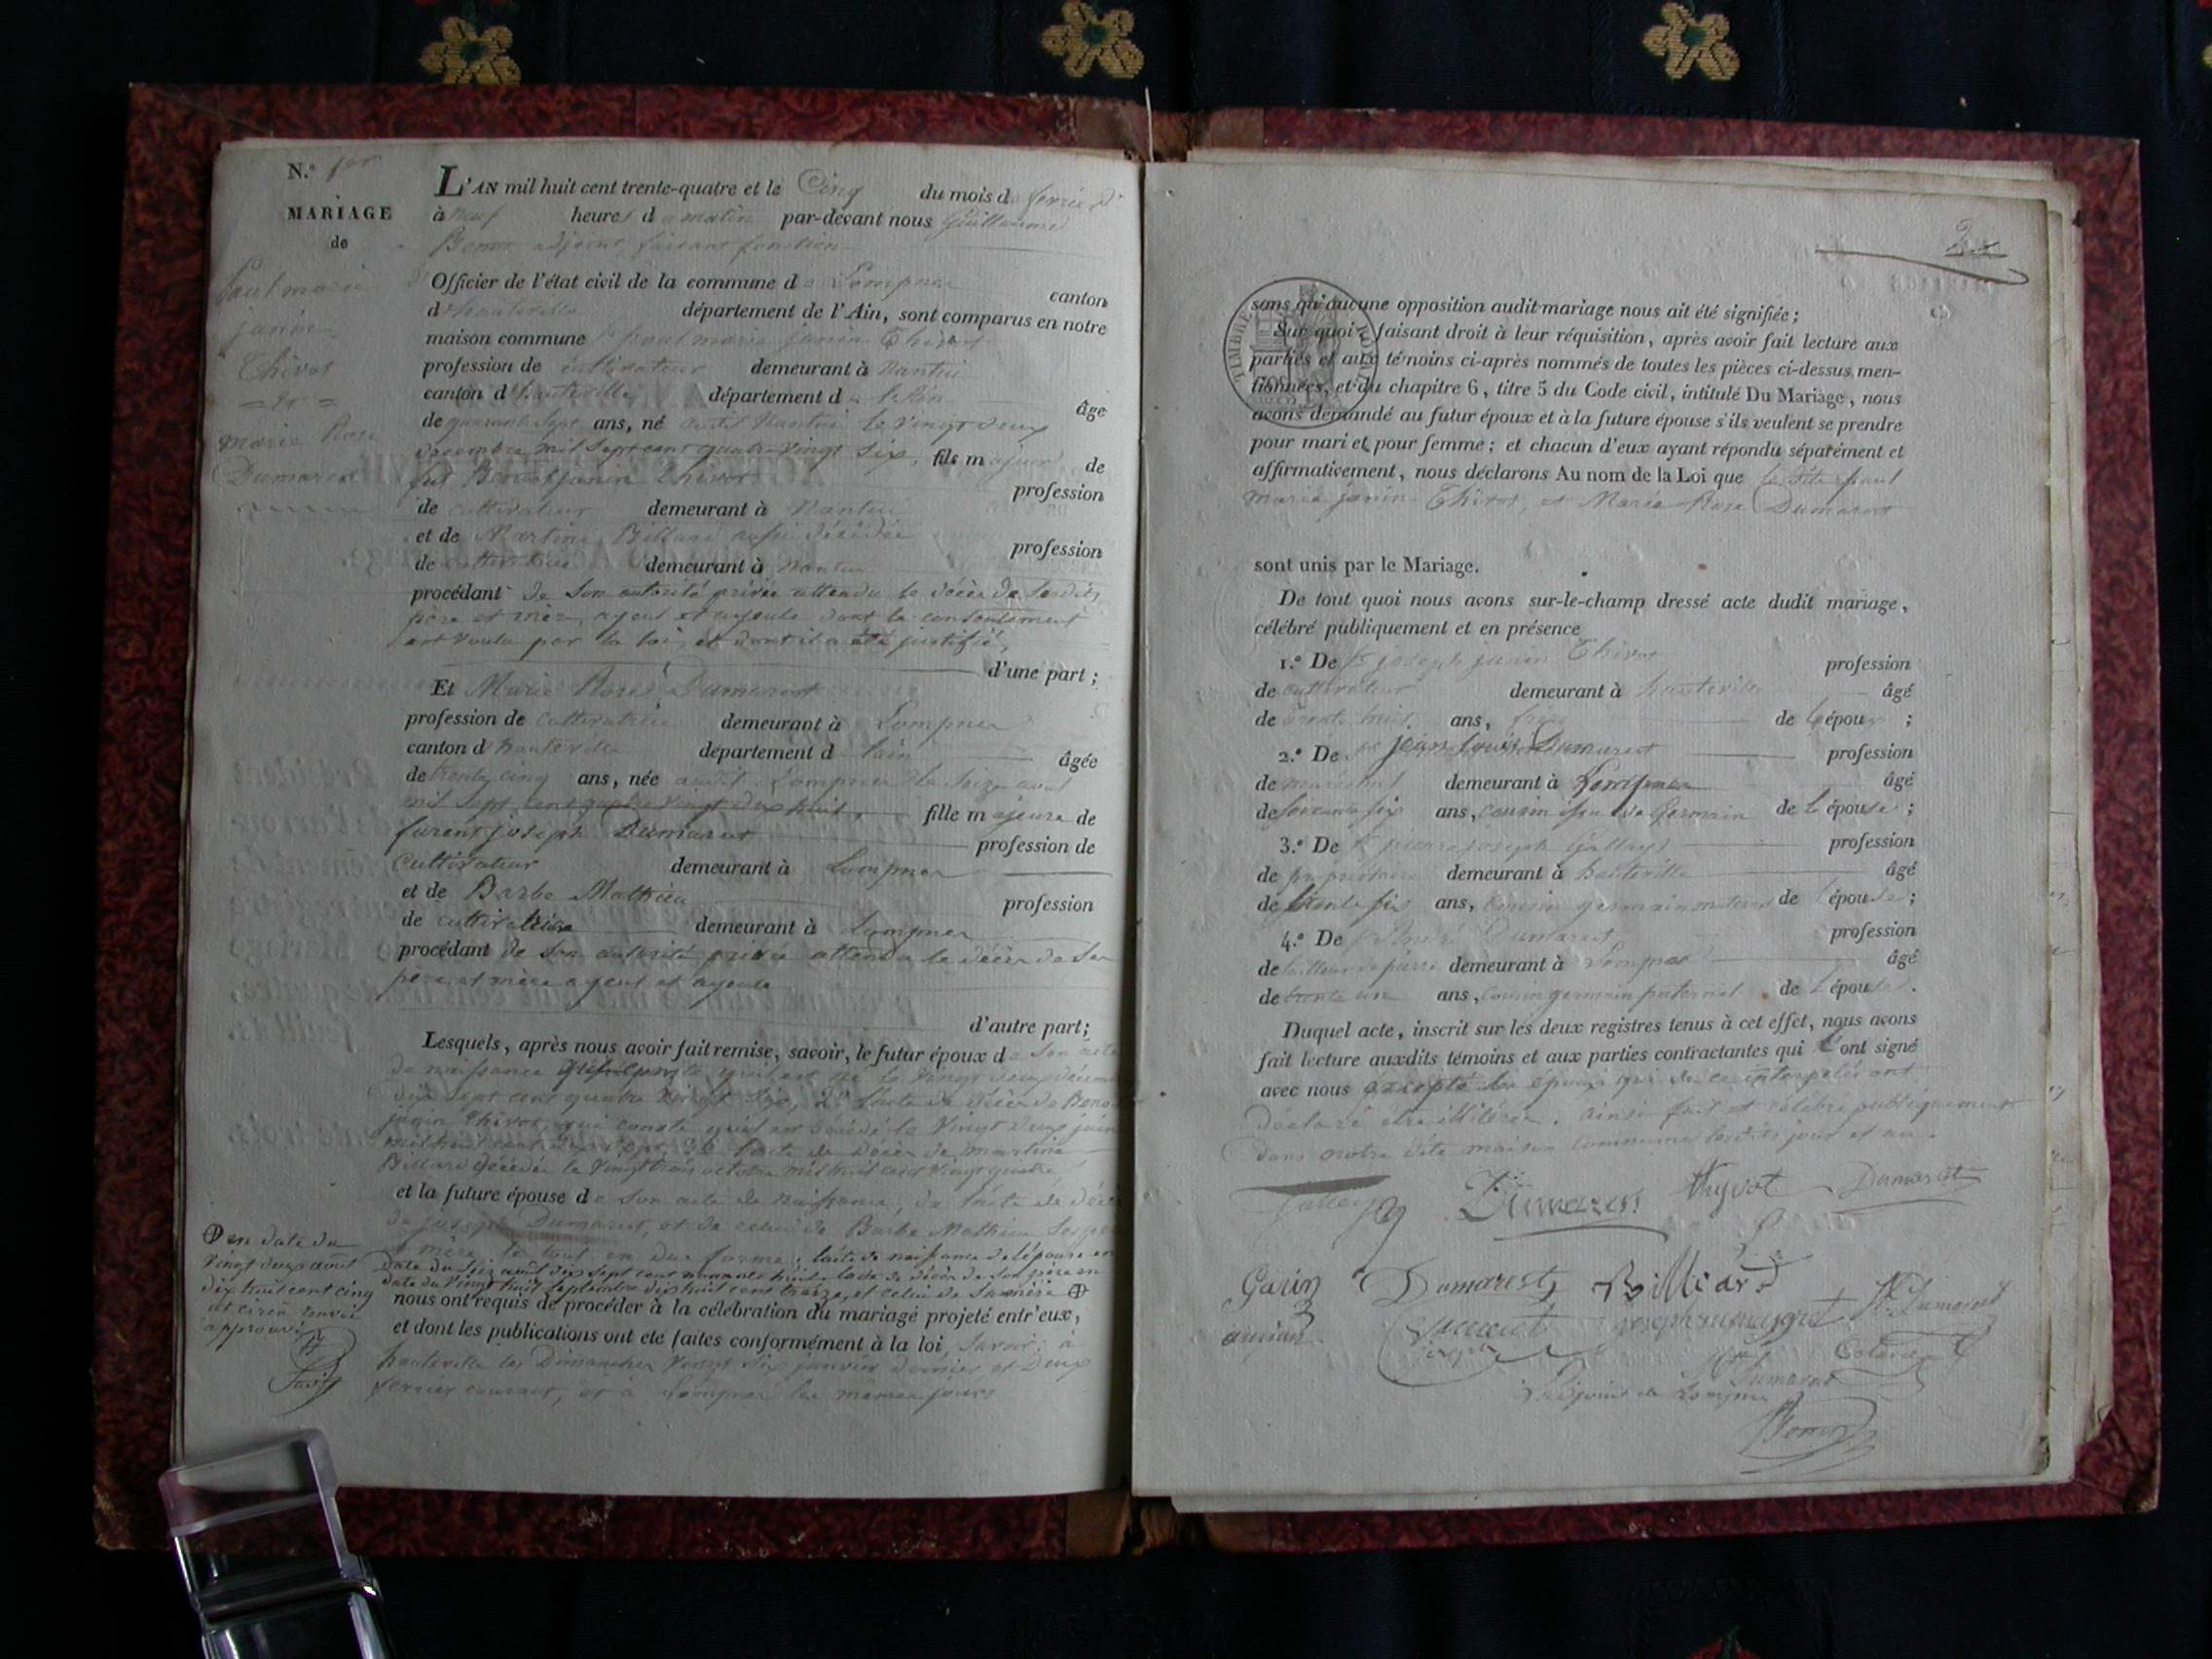 N.o 1er
MARIAGE
de
Paul marie
janin
Thivot
et
marie Rose
Dumarest
L'AN mil huit cent trente-quatre et le Cinq du mois de fevrier
à neuf heures du matin par-devant nous Guillaume
Bonnet adjoint faisant fonction
Officier de l'état civil de la commune de Lompnes canton
d'hauteville département de l'Ain, sont comparus en notre
maison commune Sr paul marie janin Thivot
profession de cultivateur demeurant à Nantuy
canton d'hauteville département de l'ain âgé
de quarante sept ans, né audit Nantuy le vingt deux
décembre mil sept cent quatre vingt six, fils majeur de
fut Benoit janin Thivot profession
de cultivateur demeurant à Nantuy
et de Martine Billiard aussi décédée profession
de cultivatrice demeurant à Nantuy
procédant de son autorité privée attendu le décès de ses dits
père et mère, ayeul et ayeule dont le consentement
est voulu par la loi, et dont il a été justifié,
d'une part ;
Et Marie Rose Dumarest
profession de cultivatrice demeurant à Lompnes
canton d'hauteville département de l'ain âgée
de trente cinq ans, née audit Lompnes le seize aout
mil sept cent quatre vingt dix huit, fille majeure de
furent joseph Dumarest profession de
cultivateur demeurant à Lompnes
et de Barbe Mathieu profession
de cultivatrice demeurant à Lompnes
procédant de son autorité privée attendu le décès de ses
père et mère ayeul et ayeule
d'autre part ;
Lesquels, après nous avoir fait remise, savoir, le futur époux de son acte
de naissance qu'il est né le vingt deux décembre
dix sept cent quatre vingt six, 2o l'acte de décès de Benoit
janin Thivot, qui conste qu'il est décédé le vingt deux juin
mil huit cent dix sept, 3o l'acte de décès de martine
Billiard décédée le vingt trois octobre mil huit cent vingt quatre
et la future épouse de son acte de naissance, de l'acte de décès
de joseph Dumarest, et de celui de Barbe Mathieu ses père
et mère, le tout en due forme, l'acte de naissance de l'épouse en
date du seize août dix sept cent nonante huit, l'acte de décès de son père en
date du vingt huit septembre dix huit cent treize, et celui de sa mère ⊕
nous ont requis de procéder à la célébration du mariage projeté entr'eux,
et dont les publications ont été faites conformément à la loi, savoir, à
hauteville les Dimanches vingt six janvier dernier et deux
fevrier courant, et à Lompnes les mêmes jours
⊕ en date du
vingt deux août
dix huit cent cinq
renvoi
approuvé
2
TIMBRE ROYAL
sans qu'aucune opposition audit mariage nous ait été signifiée ;
Sur quoi, faisant droit à leur réquisition, après avoir fait lecture aux
parties et aux témoins ci-après nommés de toutes les pièces ci-dessus men-
tionnées, et du chapitre 6, titre 5 du Code civil, intitulé Du Mariage, nous
avons demandé au futur époux et à la future épouse s'ils veulent se prendre
pour mari et pour femme ; et chacun d'eux ayant répondu séparément et
affirmativement, nous déclarons Au nom de la Loi que lesdits paul
marie janin-Thivot, et Marie Rose Dumarest
sont unis par le Mariage.
De tout quoi nous avons sur-le-champ dressé acte dudit mariage,
célébré publiquement et en présence
1.o De Sr joseph janin Thivot profession
de cultivateur demeurant à hauteville âgé
de trente huit ans, frère de l'époux ;
2.o De Sr jean louis Dumarest profession
de maréchal demeurant à Lompnes âgé
de soixante six ans, cousin issu de Germain de l'épouse ;
3.o De Sr pierre joseph Gallay profession
de propriétaire demeurant à hauteville âgé
de trente six ans, cousin germain maternel de l'épouse ;
4.o De Sr André Dumarest profession
de tailleur de pierre demeurant à Lompnes âgé
de trente un ans, cousin germain paternel de l'épouse.
Duquel acte, inscrit sur les deux registres tenus à cet effet, nous avons
fait lecture auxdits témoins et aux parties contractantes qui l'ont signé
avec nous excepté les époux qui de ce interpelés ont
déclaré être illitérés. ainsi fait et célébré publiquement
dans notre dite maison commune lesdits jour et an.
Gallay Dumarest thyvot Dumarest
Gorin Dumarest Billiard
Dumarest
Dumarest
L'adjoint de Lompnes
Bonnet